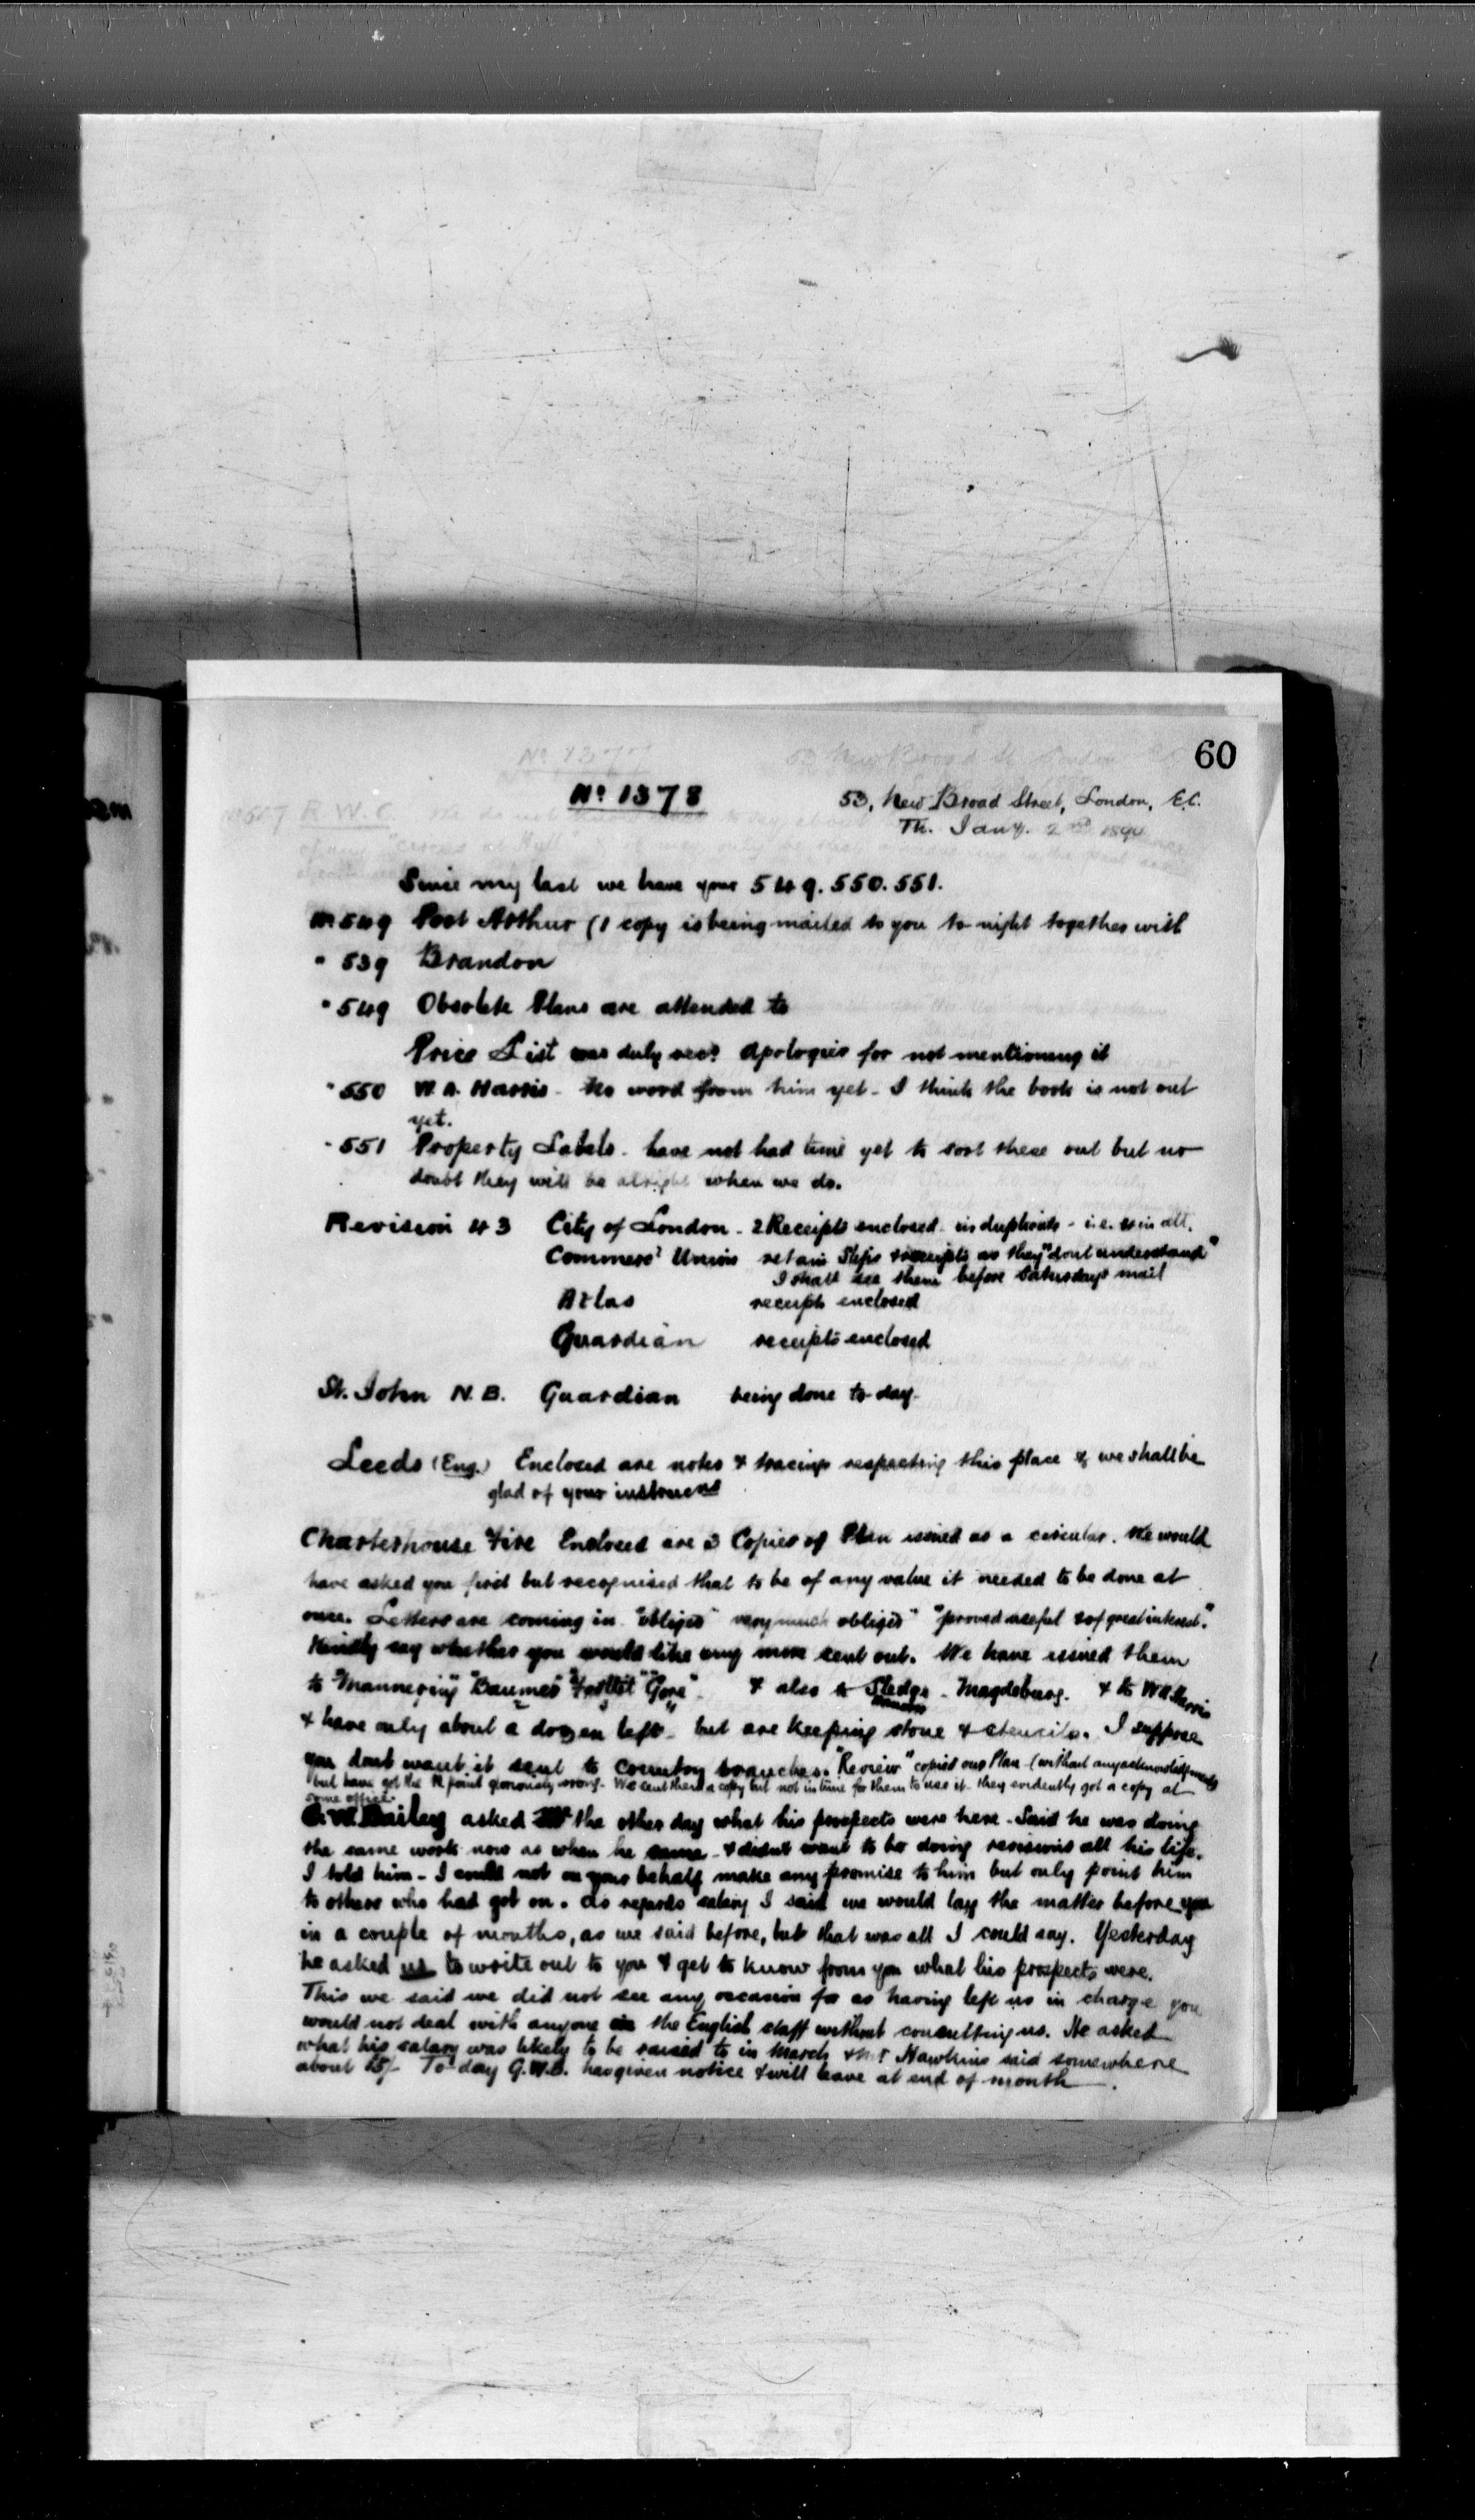 60
No 1378
53, New Broad Street, London, E.C.
Th. Jany. 2nd 1890
Since my last we have your 549. 550. 551.
In 549 Port Arthur (1 copy is being mailed to you to night together with
" 539 Brandon
" 549 Obsolete Plans are attended to
Price List was duly recd. Apologies for not mentioning it
" 550 W. A. Harris - No word from him yet - I think the book is not out
yet.
" 551 Property Labels - have not had time yet to sort these out but no
doubt they will be alright when we do.
Revision 43 City of London - 2 Receipts enclosed in duplicate - i.e. in all.
Commerl Union retain Slips & receipts as they "dont understand"
I shall see them before Saturdays mail
Atlas receipts enclosed
Guardian receipts enclosed
St. John N.B. Guardian being done to day.
Leeds (Eng.) Enclosed are notes & tracings respecting this place & we shall be
glad of your
Charterhouse Fire Enclosed are 3 Copies of Plan issued as a circular. We would
have asked you first but recognised that to be of any value it needed to be done at
once. Letters are coming in "obliged" "very much obliged" "proved useful & of great interest."
Kindly say whether you would like any more sent out. We have issued them
to "Mannering" "Baumer" "Gore" & also to Sledge - Magdeburg. & to W A Harris
& have only about a dozen left - but are keeping stone & stencils. I suppose
you dont want it sent to Country branches. "Review" copied our Plan (without any acknowledgment)
but have got the N point gloriously wrong. We sent them a copy but not in time for them to use it - they evidently got a copy at
some office.
G. W. Bailey asked the other day what his prospects were here. Said he was doing
the same work now as when he came - & didn't want to be doing revisions all his life.
I told him - I could not on your behalf make any promise to him but only point him
to others who had got on. As regards salary I said we would lay the matter before you
in a couple of months, as we said before, but that was all I could say. Yesterday
he asked us to write out to you & get to know from you what his prospects were.
This we said we did not see any occasion for as having left us in charge you
would not deal with anyone in the English staff without consulting us. He asked
what his salary was likely to be raised to in March & Mr Hawkins said somewhere
about To day G.W.B. has given notice & will leave at end of month.